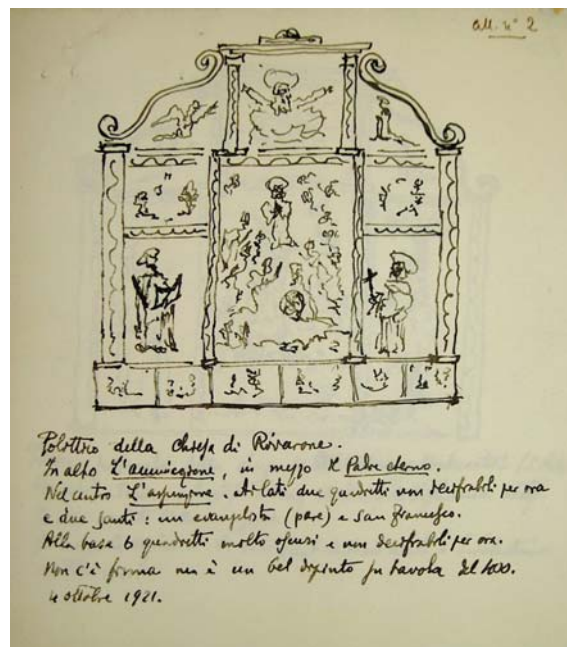 all. n° 2
Polittico della Chiesa di Rivarone.
In alto L'annunciazione, in mezzo il Padre eterno.
Nel centro L'assunzione. Ai lati due quadretti non decifrabili per ora
e due santi: un evangelista (pare) e San Francesco.
Alla base 6 quadretti molto oscuri e non decifrabili per ora.
Non c'è firma ma è un bel dipinto su tavola del
4 ottobre 1921.